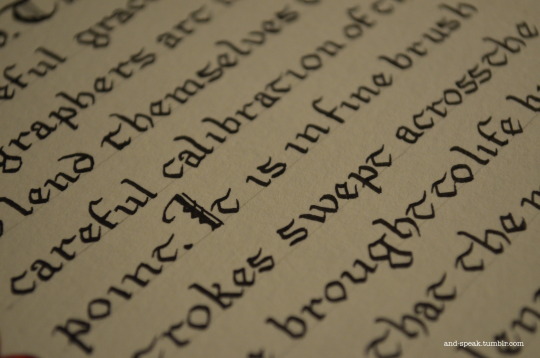 graphers are
lend themselves
careful calibration of
point. It is in fine brush
strokes swept across the
brought to life
that the
and-speak.tumblr.com